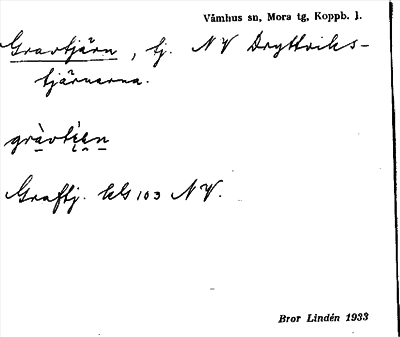 Våmhus sn, Mora tg, Koppb. l.
Gravtjärn, tj. NV Dryttviks-
tjärnarna.
Graftj. kls 103 NV.
Bror Lindén 1933